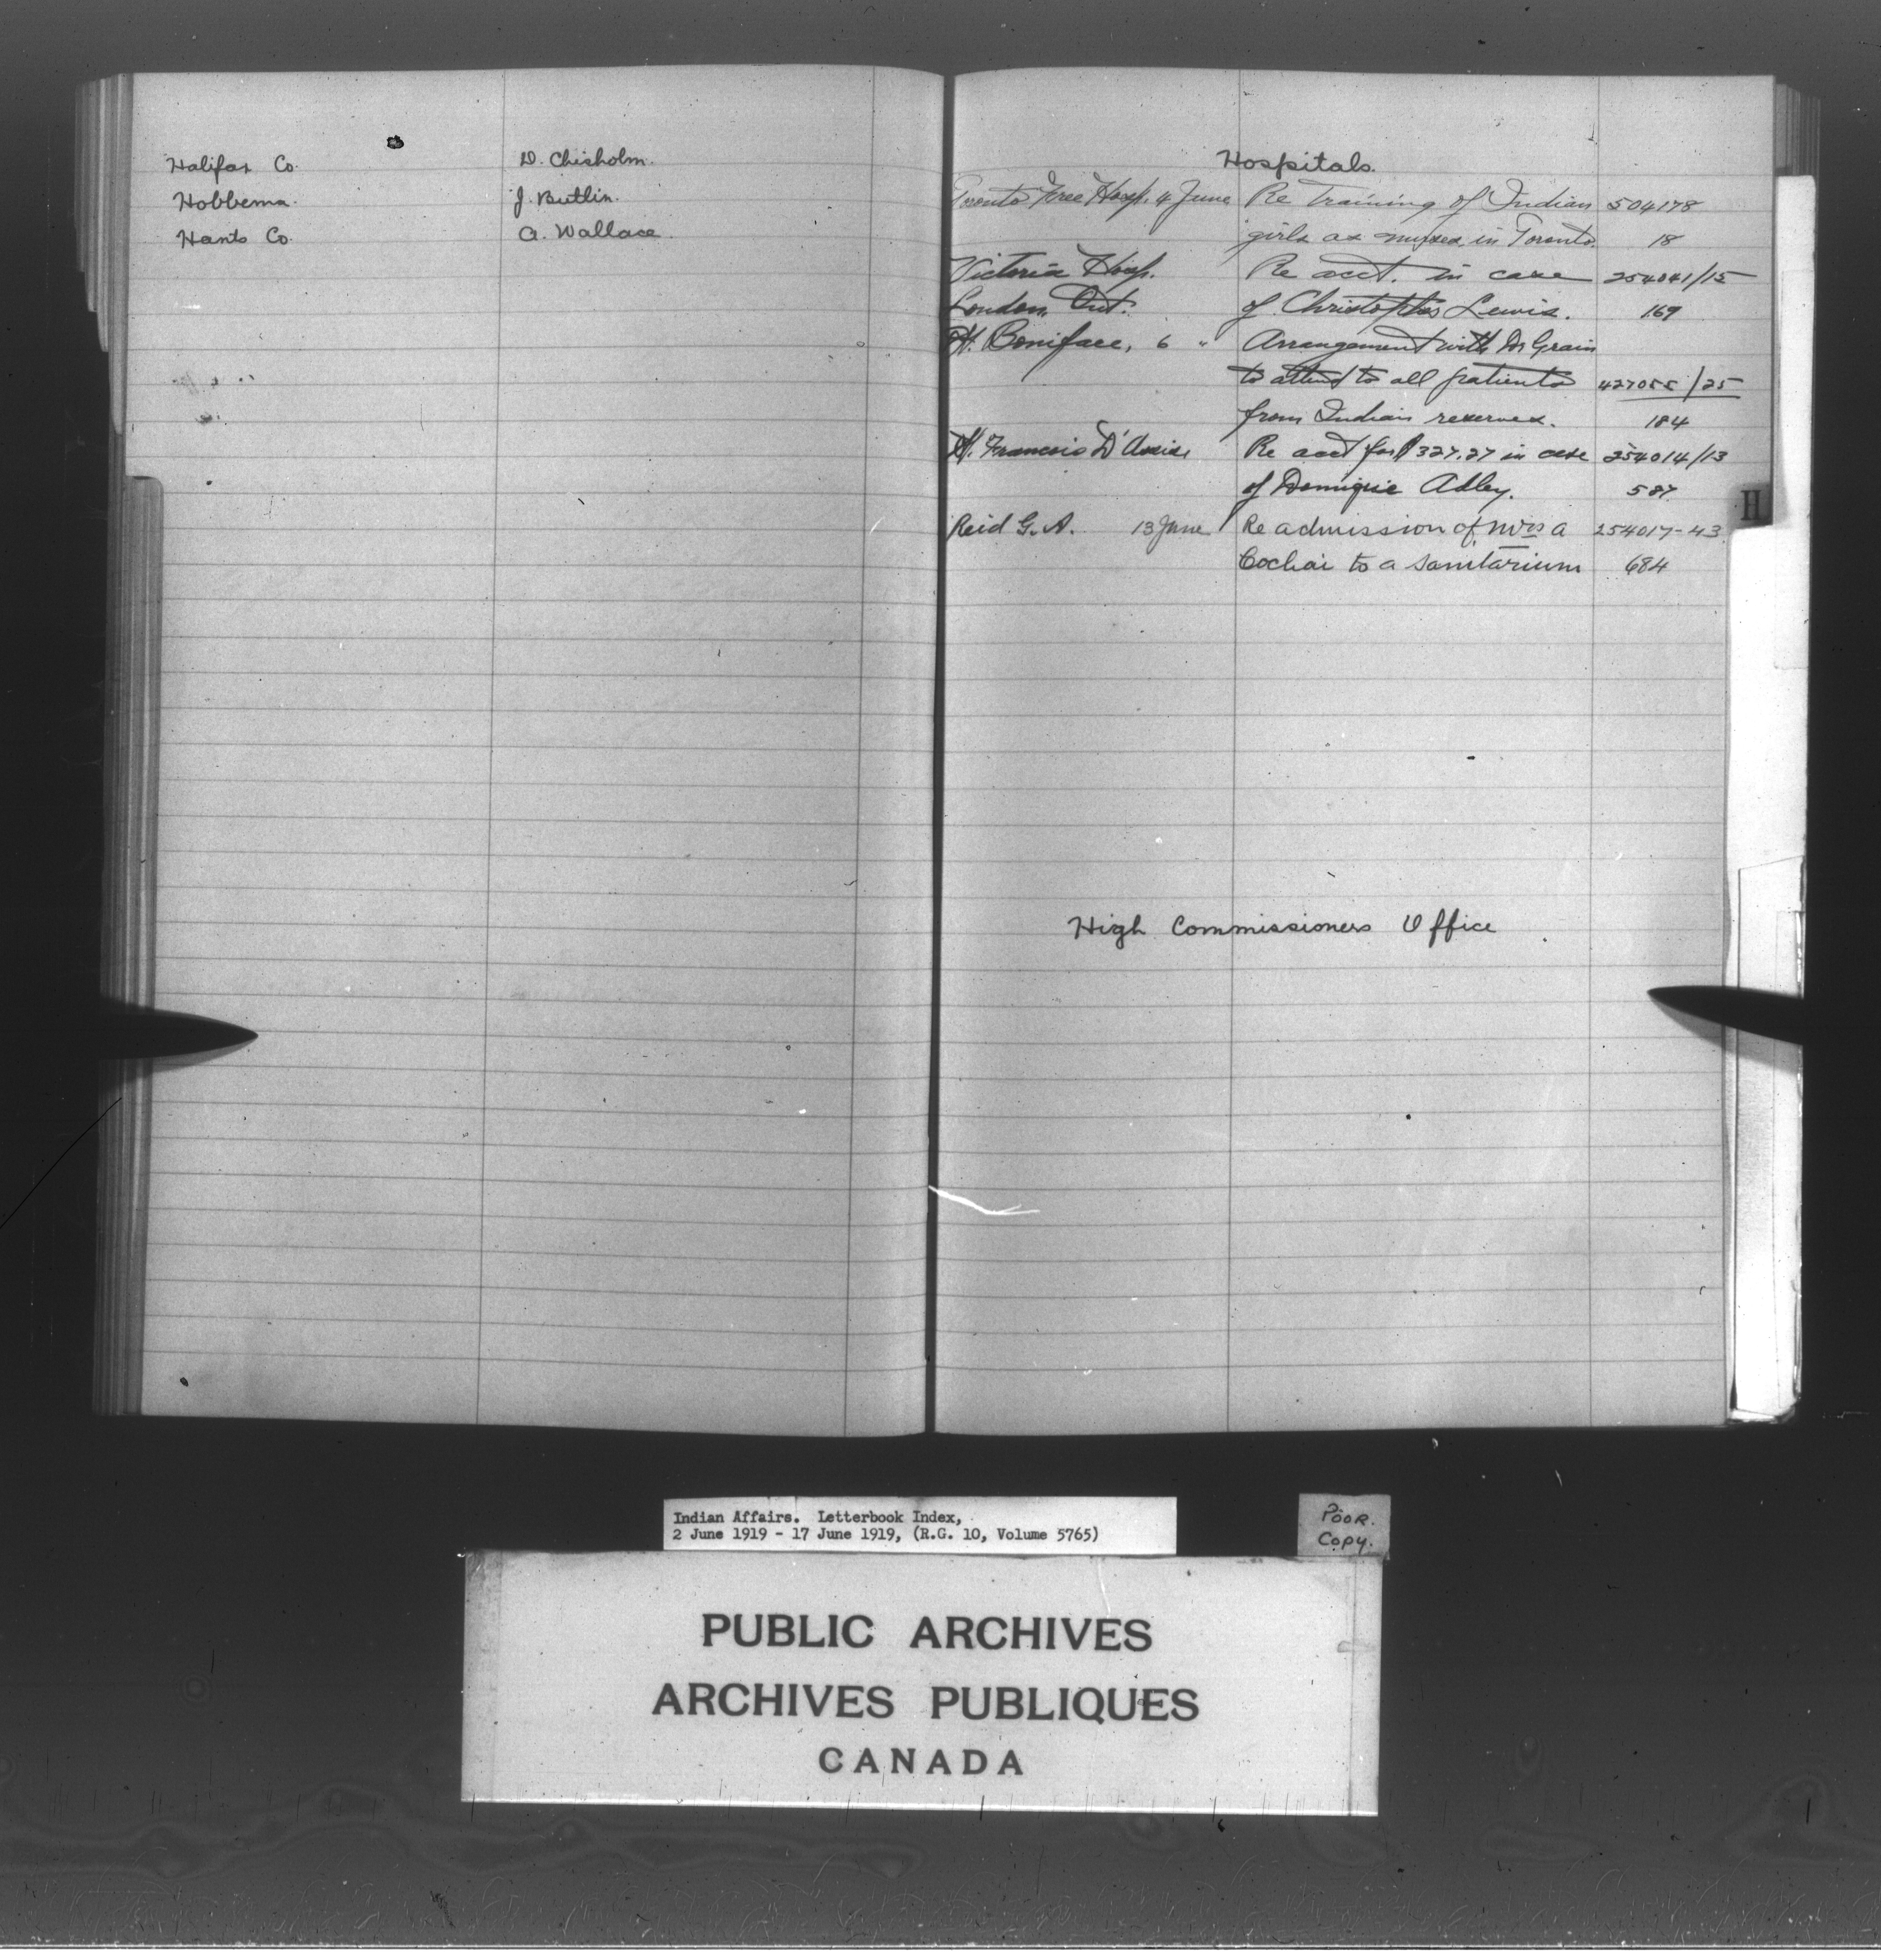 Halifax Co. D. Chisholm.
Hobbema. J. Butlin.
Hants Co. A. Wallace.
Hospitals.
Toronto Free Hosp. 4 June Re training of Indian 504178
girls as nurses in Toronto. 18
Victoria Hosp. Re acct. in case 254041/15
London, Ont. of Christopher Lewis. 169
St. Boniface, 6 " Arrangement with Dr Grain
to attend to all patients 427055/25
from Indian reserves. 184
St. Francois D'Assise Re acct for $327.27 in case 254014/13
of Domique 587
Reid G. A. 13 June Re admission of Mrs A 254017-43
to a Sanitarium 684
H
High Commissioners Office
Indian Affairs. Letterbook Index,
2 June 1919 - 17 June 1919, (R.G. 10, Volume 5765)
POOR.
COPY.
PUBLIC ARCHIVES
ARCHIVES PUBLIQUES
CANADA